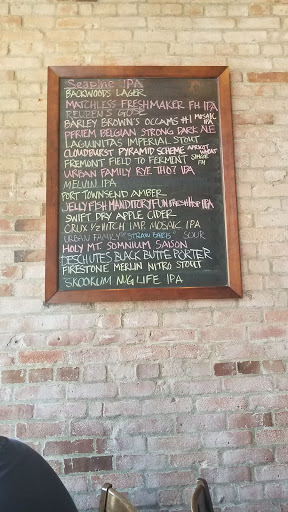 Seapine IPA
BACKWOODS LAGER
MATCHLESS FRESHMAKER FH IPA
REUBEN'S GOSE
BARLEY BROWN'S OCCAMS #1 MOSAIC IPA
PFRIEM BELGIAN STRONG DARK ALE
LAGUNITAS IMPERIAL STOUT
CLOUDBURST PYRAMID SCHEME APRICOT WHEAT
FREMONT FIELD TO FERMENT SIMCOE
URBAN FAMILY RYE THO? IPA
MELVIN IPA
PORT TOWNSEND AMBER
JELLYFISH MANDITORY FUN FRESH HOP IPA
SWIFT DRY APPLE CIDER
CRUX ½ HITCH IMP. MOSAIC IPA
URBAN FAMILY SOUR
HOLY MT. SOMNIUM SAISON
DESCHUTES BLACK BUTTE PORTER
FIRESTONE MERLIN NITRO STOUT
SKOOKUM NUG LIFE IPA